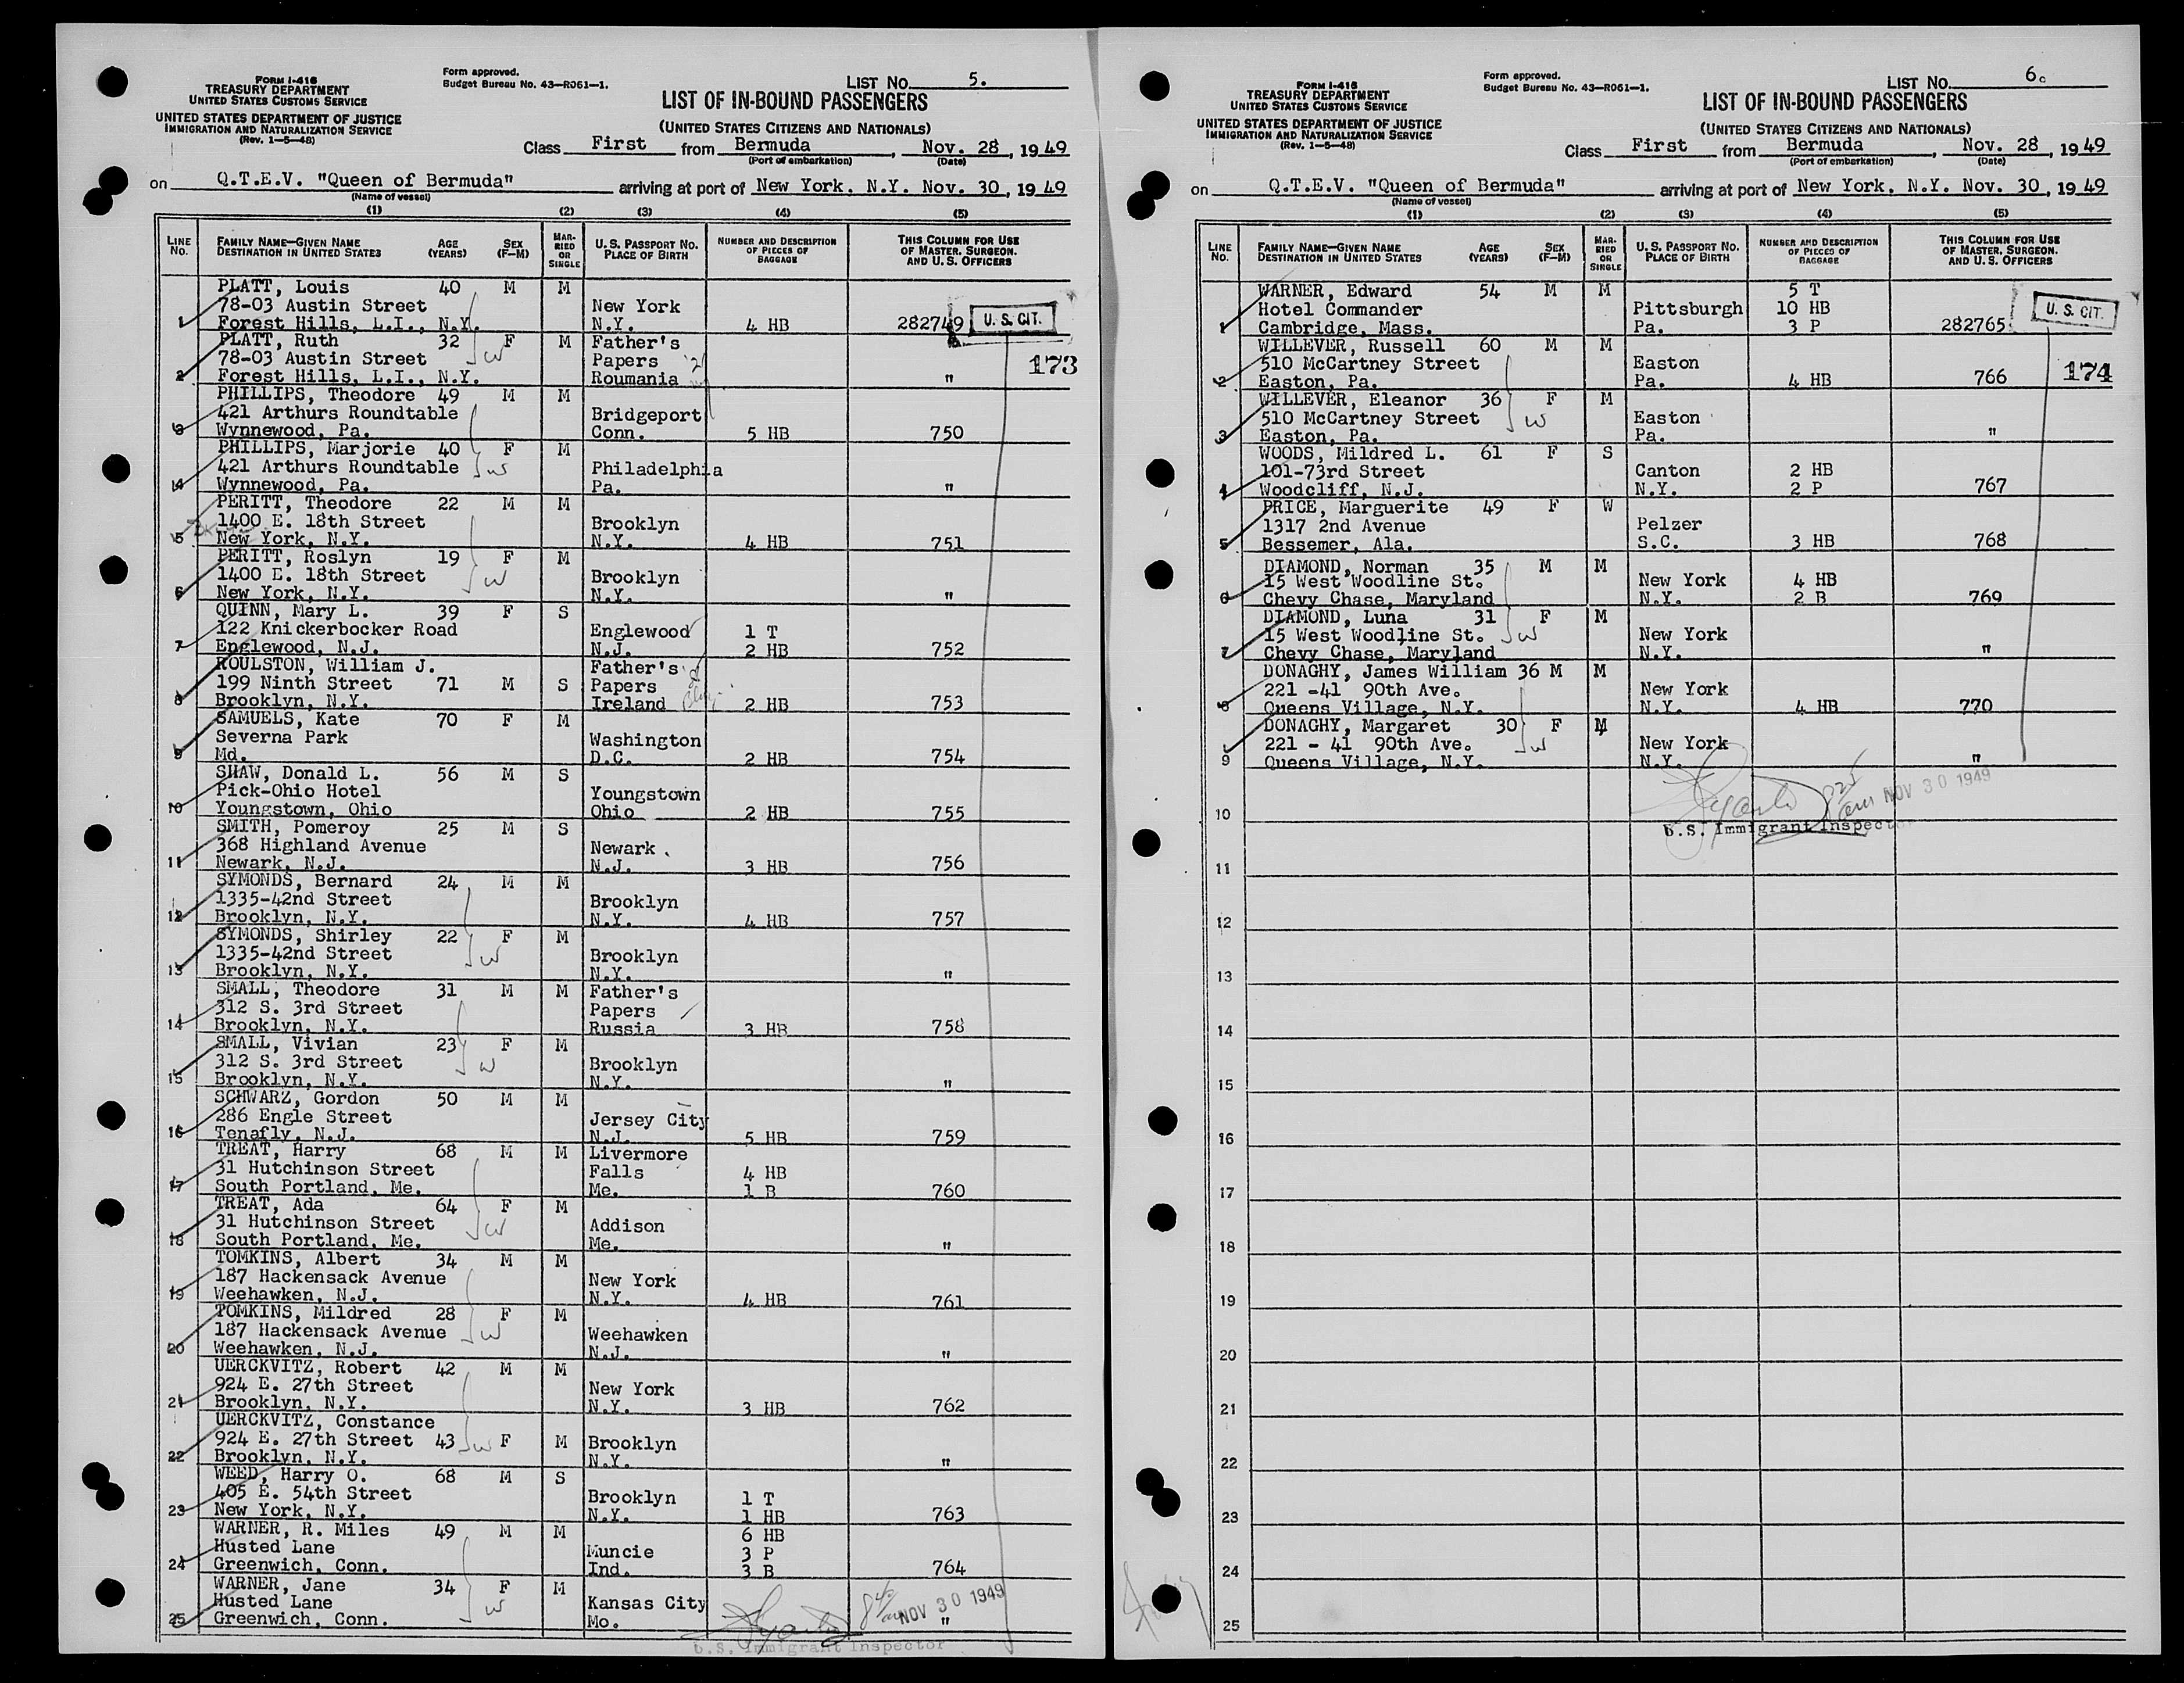 FORM I-416
TREASURY DEPARTMENT
UNITED STATES CUSTOMS SERVICE
UNITED STATES DEPARTMENT OF JUSTICE
IMMIGRATION AND NATURALIZATION SERVICE
(Rev. 1-5-48)
Form approved.
Budget Bureau No. 43-R061-1.
LIST No. 5.
LIST OF IN-BOUND PASSENGERS
(UNITED STATES CITIZENS AND NATIONALS)
Class First from Bermuda, Nov. 28, 1949
(Port of embarkation) (Date)
on Q.T.E.V. "Queen of Bermuda" arriving at port of New York, N.Y. Nov. 30, 1949
(Name of vessel)
(1) (2) (3) (4) (5)
LINE No. FAMILY NAME—GIVEN NAME DESTINATION IN UNITED STATES AGE (YEARS) SEX (F-M) MARRIED OR SINGLE U.S. PASSPORT No. PLACE OF BIRTH NUMBER AND DESCRIPTION OF PIECES OF BAGGAGE THIS COLUMN FOR USE OF MASTER, SURGEON, AND U.S. OFFICERS
PLATT, Louis 40 M M
78-03 Austin Street New York
1 Forest Hills, L.I., N.Y. N.Y. 4 HB 282749 U. S. CIT.
PLATT, Ruth 32 F M Father's
78-03 Austin Street W Papers 173
2 Forest Hills, L.I., N.Y. Roumania "
PHILLIPS, Theodore 49 M M
421 Arthurs Roundtable Bridgeport
3 Wynnewood, Pa. Conn. 5 HB 750
PHILLIPS, Marjorie 40 F M
421 Arthurs Roundtable W Philadelphia
4 Wynnewood, Pa. Pa. "
PERITT, Theodore 22 M M
1400 E. 18th Street Brooklyn
5 New York, N.Y. N.Y. 4 HB 751
PERITT, Roslyn 19 F M
1400 E. 18th Street W Brooklyn
6 New York, N.Y. N.Y. "
QUINN, Mary L. 39 F S
122 Knickerbocker Road Englewood 1 T
7 Englewood, N.J. N.J. 2 HB 752
ROULSTON, William J. Father's
199 Ninth Street 71 M S Papers
8 Brooklyn, N.Y. Ireland 2 HB 753
SAMUELS, Kate 70 F M
Severna Park Washington
9 Md. D.C. 2 HB 754
SHAW, Donald L. 56 M S
Pick-Ohio Hotel Youngstown
10 Youngstown, Ohio Ohio 2 HB 755
SMITH, Pomeroy 25 M S
368 Highland Avenue Newark
11 Newark, N.J. N.J. 3 HB 756
SYMONDS, Bernard 24 M M
1335-42nd Street Brooklyn
12 Brooklyn, N.Y. N.Y. 4 HB 757
SYMONDS, Shirley 22 F M
1335-42nd Street W Brooklyn
13 Brooklyn, N.Y. N.Y. "
SMALL, Theodore 31 M M Father's
312 S. 3rd Street Papers
14 Brooklyn, N.Y. Russia 3 HB 758
SMALL, Vivian 23 F M
312 S. 3rd Street W Brooklyn
15 Brooklyn, N.Y. N.Y. "
SCHWARZ, Gordon 50 M M
286 Engle Street Jersey City
16 Tenafly, N.J. N.J. 5 HB 759
TREAT, Harry 68 M M Livermore
31 Hutchinson Street Falls 4 HB
17 South Portland, Me. Me. 1 B 760
TREAT, Ada 64 F M
31 Hutchinson Street W Addison
18 South Portland, Me. Me. "
TOMKINS, Albert 34 M M
187 Hackensack Avenue New York
19 Weehawken, N.J. N.Y. 4 HB 761
TOMKINS, Mildred 28 F M
187 Hackensack Avenue W Weehawken
20 Weehawken, N.J. N.J. "
UERCKVITZ, Robert 42 M M
924 E. 27th Street New York
21 Brooklyn, N.Y. N.Y. 3 HB 762
UERCKVITZ, Constance
924 E. 27th Street 43 W F M Brooklyn
22 Brooklyn, N.Y. N.Y. "
WEED, Harry O. 68 M S
405 E. 54th Street Brooklyn 1 T
23 New York, N.Y. N.Y. 1 HB 763
WARNER, R. Miles 49 M M 6 HB
Husted Lane Muncie 3 P
24 Greenwich, Conn. Ind. 3 B 764
WARNER, Jane 34 F M
Husted Lane W Kansas City NOV 30 1949
25 Greenwich, Conn. Mo. "
U.S. Immigrant Inspector
FORM I-416
TREASURY DEPARTMENT
UNITED STATES CUSTOMS SERVICE
UNITED STATES DEPARTMENT OF JUSTICE
IMMIGRATION AND NATURALIZATION SERVICE
(Rev. 1-5-48)
Form approved.
Budget Bureau No. 43-R061-1.
LIST No. 6.
LIST OF IN-BOUND PASSENGERS
(UNITED STATES CITIZENS AND NATIONALS)
Class First from Bermuda, Nov. 28, 1949
(Port of embarkation) (Date)
on Q.T.E.V. "Queen of Bermuda" arriving at port of New York, N.Y. Nov. 30, 1949
(Name of vessel)
(1) (2) (3) (4) (5)
LINE No. FAMILY NAME—GIVEN NAME DESTINATION IN UNITED STATES AGE (YEARS) SEX (F-M) MARRIED OR SINGLE U.S. PASSPORT No. PLACE OF BIRTH NUMBER AND DESCRIPTION OF PIECES OF BAGGAGE THIS COLUMN FOR USE OF MASTER, SURGEON, AND U.S. OFFICERS
WARNER, Edward 54 M M 5 T
Hotel Commander Pittsburgh 10 HB
1 Cambridge, Mass. Pa. 3 P 282765 U. S. CIT.
WILLEVER, Russell 60 M M
510 McCartney Street Easton
2 Easton, Pa. Pa. 4 HB 766 174
WILLEVER, Eleanor 36 F M
510 McCartney Street W Easton
3 Easton, Pa. Pa. "
WOODS, Mildred L. 61 F S
101-73rd Street Canton 2 HB
4 Woodcliff, N.J. N.Y. 2 P 767
PRICE, Marguerite 49 F W
1317 2nd Avenue Pelzer
5 Bessemer, Ala. S.C. 3 HB 768
DIAMOND, Norman 35 M M
15 West Woodline St. New York 4 HB
6 Chevy Chase, Maryland N.Y. 2 B 769
DIAMOND, Luna 31 F M
15 West Woodline St. W New York
7 Chevy Chase, Maryland N.Y. "
DONAGHY, James William 36 M M
221 -41 90th Ave. New York
8 Queens Village, N.Y. N.Y. 4 HB 770
DONAGHY, Margaret 30 F M
221 - 41 90th Ave. W New York
9 Queens Village, N.Y. N.Y. "
NOV 30 1949
10 U.S. Immigrant Inspector
11
12
13
14
15
16
17
18
19
20
21
22
23
24
25